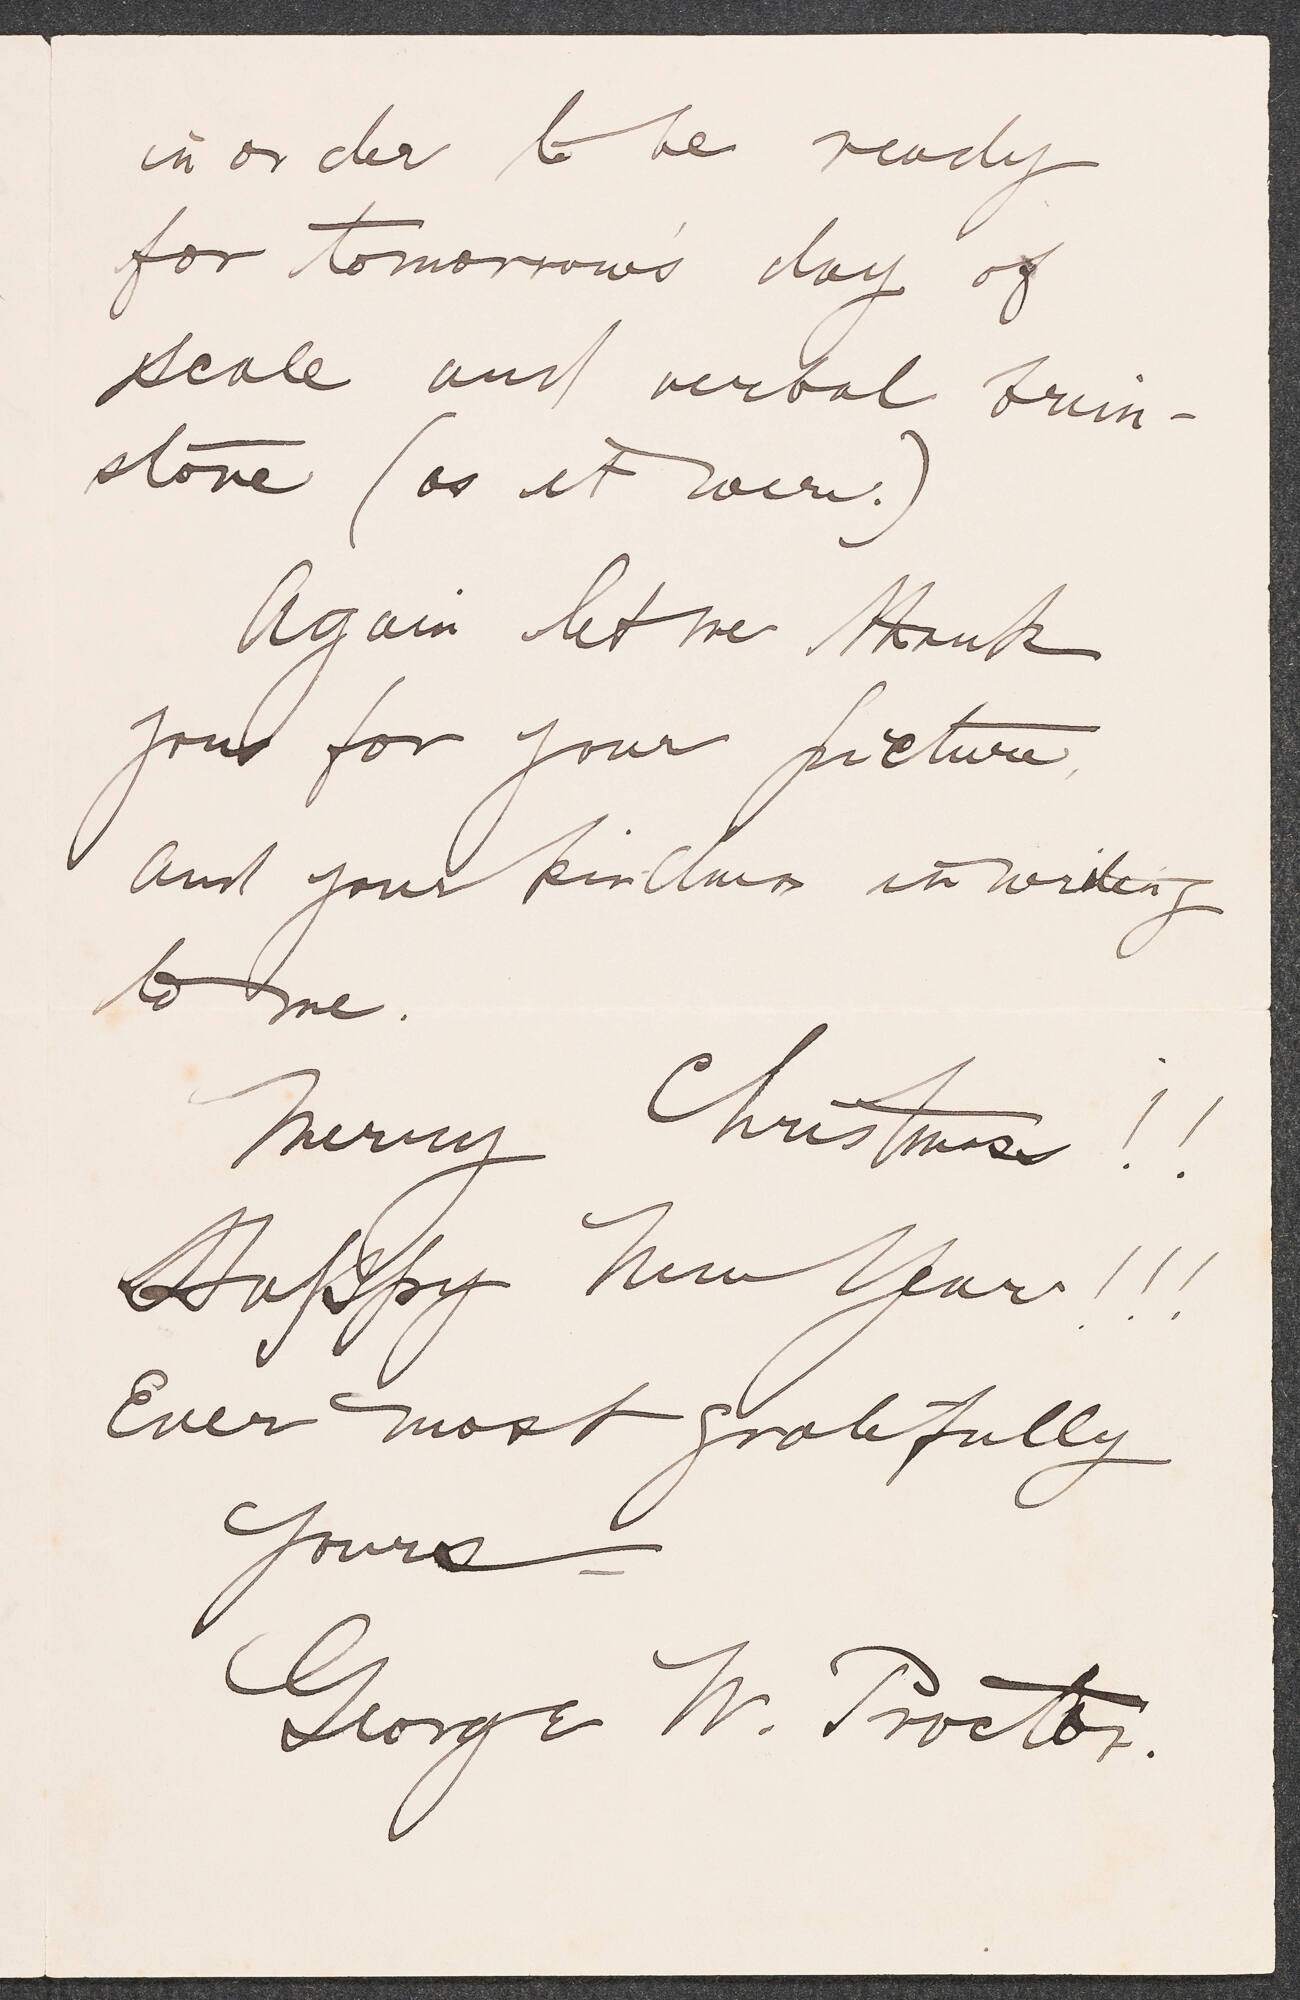 in order to be ready
for tomorrow's day of
scale and verbal brim-
stone (as it were.)
Again let me thank
you for your picture,
and your kindness in writing
to me.
Merry Christmas!!
Happy New Year!!!
Ever most gratefully
Yours =
George W. Proctor.